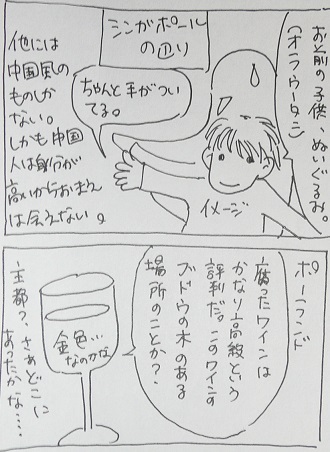 シンガポール
の辺り
お前の子供、ぬいぐるみ
(オラウータン)
ちゃんと手がつい
てる。
イメージ
他には
中国風の
ものしか
ない。
しかも中国
人は身分が
高いからおまえ
は会えない。
ポーランド
腐ったワインは
かなり高級という
評判だ。このワインの
ブドウの木のある
場所のことか?
金色…
なのかな
主都?、さあどこに
あったかな….